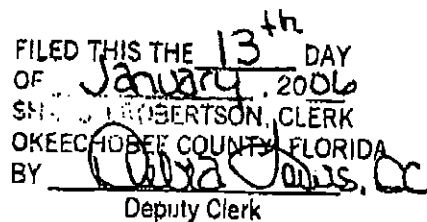 FILED THIS THE 13th DAY
OF January, 2006
ROBERTSON, CLERK
OKEECHOBEE COUNTY, FLORIDA
BY DC
Deputy Clerk